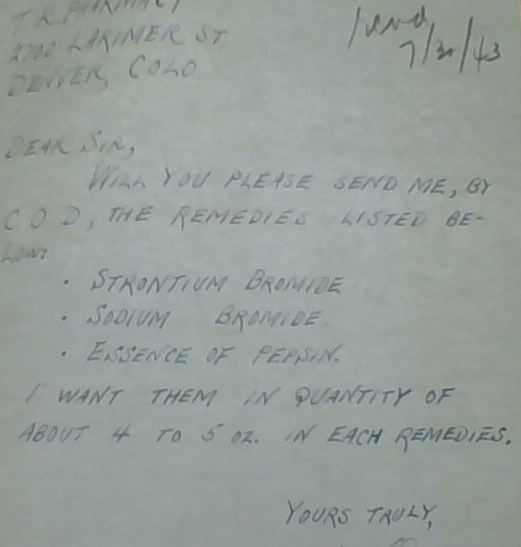 T.K. PHARMACY
2700 LARIMER ST
DENVER, COLO
7/30/43
DEAR SIR,
WILL YOU PLEASE SEND ME, BY
C O D, THE REMEDIES LISTED BE-
LOW:
• STRONTIUM BROMIDE
• SODIUM BROMIDE.
• ESSENCE OF PEPSIN.
I WANT THEM IN QUANTITY OF
ABOUT 4 TO 5 OZ. IN EACH REMEDIES.
YOURS TRULY,